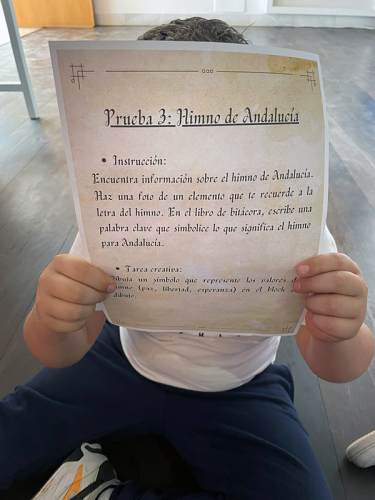 Prueba 3: Himno de Andalucía
• Instrucción:
Encuentra información sobre el himno de Andalucía.
Haz una foto de un elemento que te recuerde a la
letra del himno. En el libro de bitácora, escribe una
palabra clave que simbolice lo que significa el himno
para Andalucía.
• Tarea creativa:
Dibuja un símbolo que represente los valores
himno (paz, libertad, esperanza) en el block
dibujo.